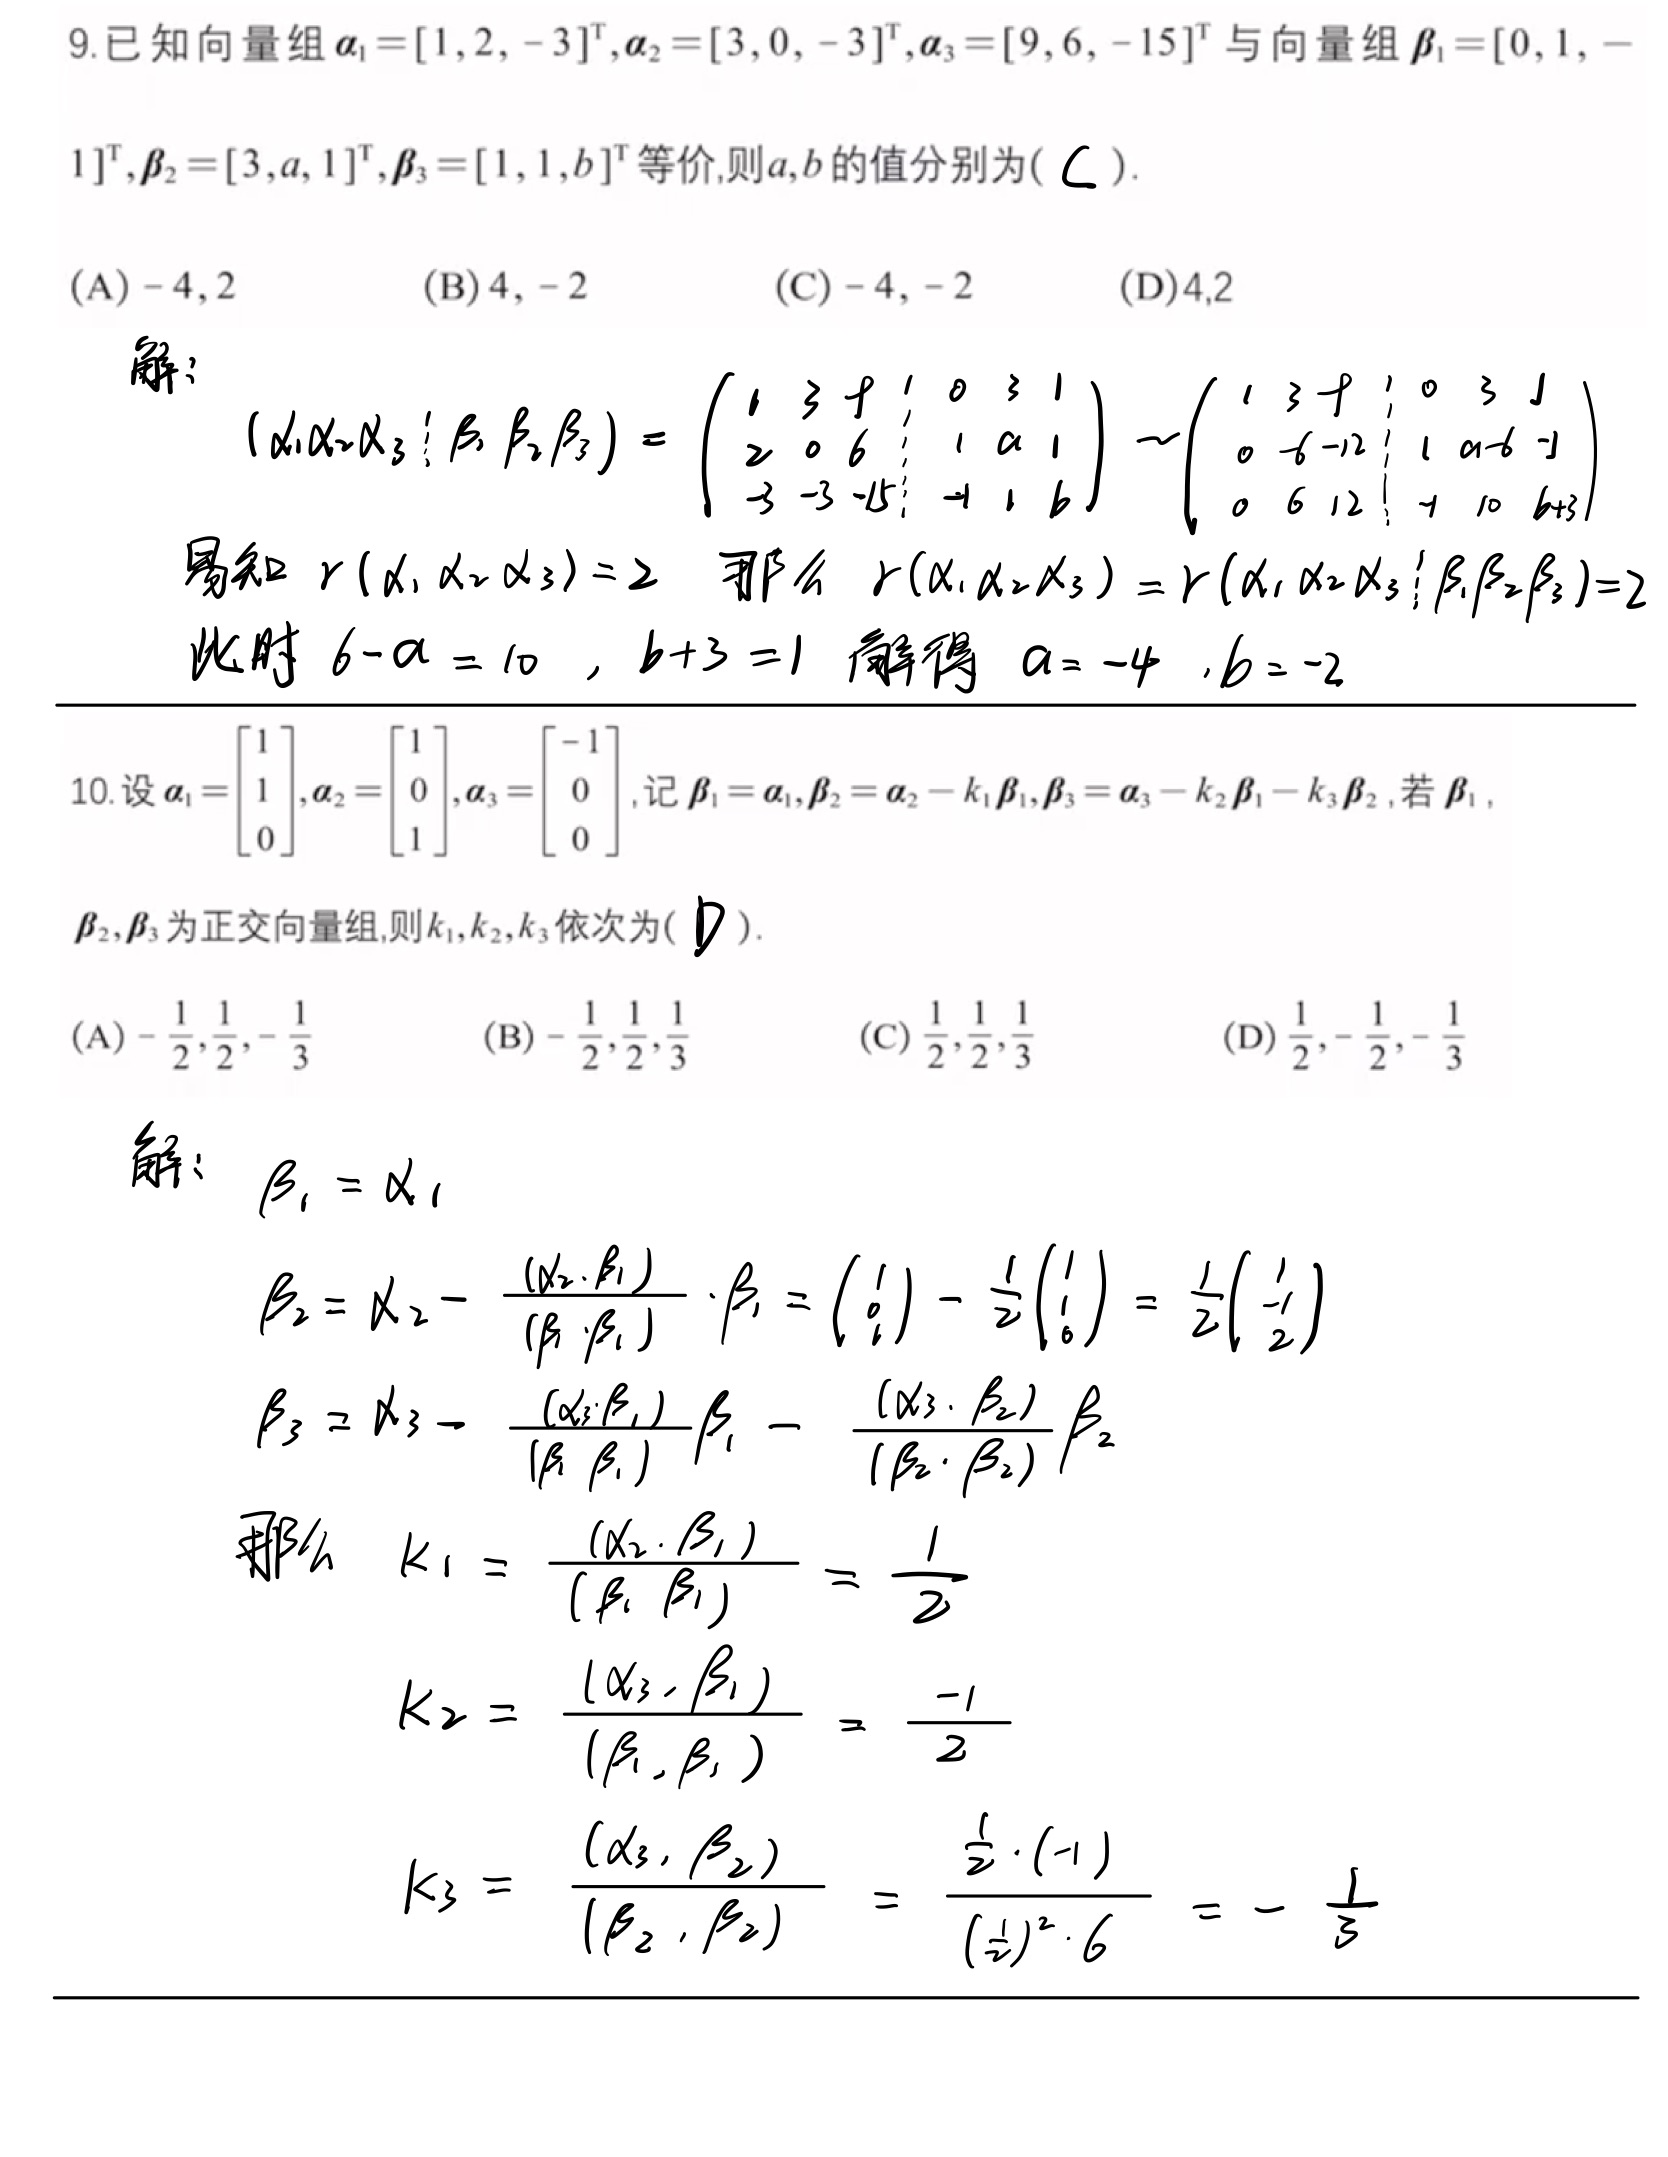 9.已知向量组 α₁=[1,2,-3]ᵀ,α₂=[3,0,-3]ᵀ,α₃=[9,6,-15]ᵀ 与向量组 β₁=[0,1,-
1]ᵀ,β₂=[3,a,1]ᵀ,β₃=[1,1,b]ᵀ等价,则a,b的值分别为( C ).
(A) -4,2 (B) 4,-2 (C) -4,-2 (D) 4,2
解:
(α₁α₂α₃ ⋮ β₁ β₂ β₃) = (1 3 9 ⋮ 0 3 1; 2 0 6 ⋮ 1 a 1; -3 -3 -15 ⋮ -1 1 b) ~ (1 3 9 ⋮ 0 3 1; 0 -6 -12 ⋮ 1 a-6 -1; 0 6 12 ⋮ -1 10 b+3)
易知 r(α₁ α₂ α₃)=2 那么 r(α₁α₂α₃) = r(α₁ α₂ α₃ ⋮ β₁β₂β₃)=2
此时 6-a = 10 , b+3 =1 解得 a= -4 ,b = -2
10.设 α₁=[1 1 0],α₂=[1 0 1],α₃=[-1 0 0],记 β₁=α₁,β₂=α₂-k₁β₁,β₃=α₃-k₂β₁-k₃β₂,若 β₁,
β₂,β₃为正交向量组,则k₁,k₂,k₃依次为( D ).
(A) -1/2,1/2,-1/3 (B) -1/2,1/2,1/3 (C) 1/2,1/2,1/3 (D) 1/2,-1/2,-1/3
解: β₁ = α₁
β₂ = α₂ - (α₂·β₁)/(β₁·β₁) ·β₁ = (1 0 1) - 1/2(1 1 0) = 1/2(1 -1 2)
β₃ = α₃ - (α₃·β₁)/(β₁ β₁) β₁ - (α₃·β₂)/(β₂·β₂) β₂
那么 k₁ = (α₂·β₁)/(β₁ β₁) = 1/2
k₂ = (α₃,β₁)/(β₁,β₁) = -1/2
k₃ = (α₃,β₂)/(β₂,β₂) = 1/2·(-1)/(1/2)²·6 = - 1/3